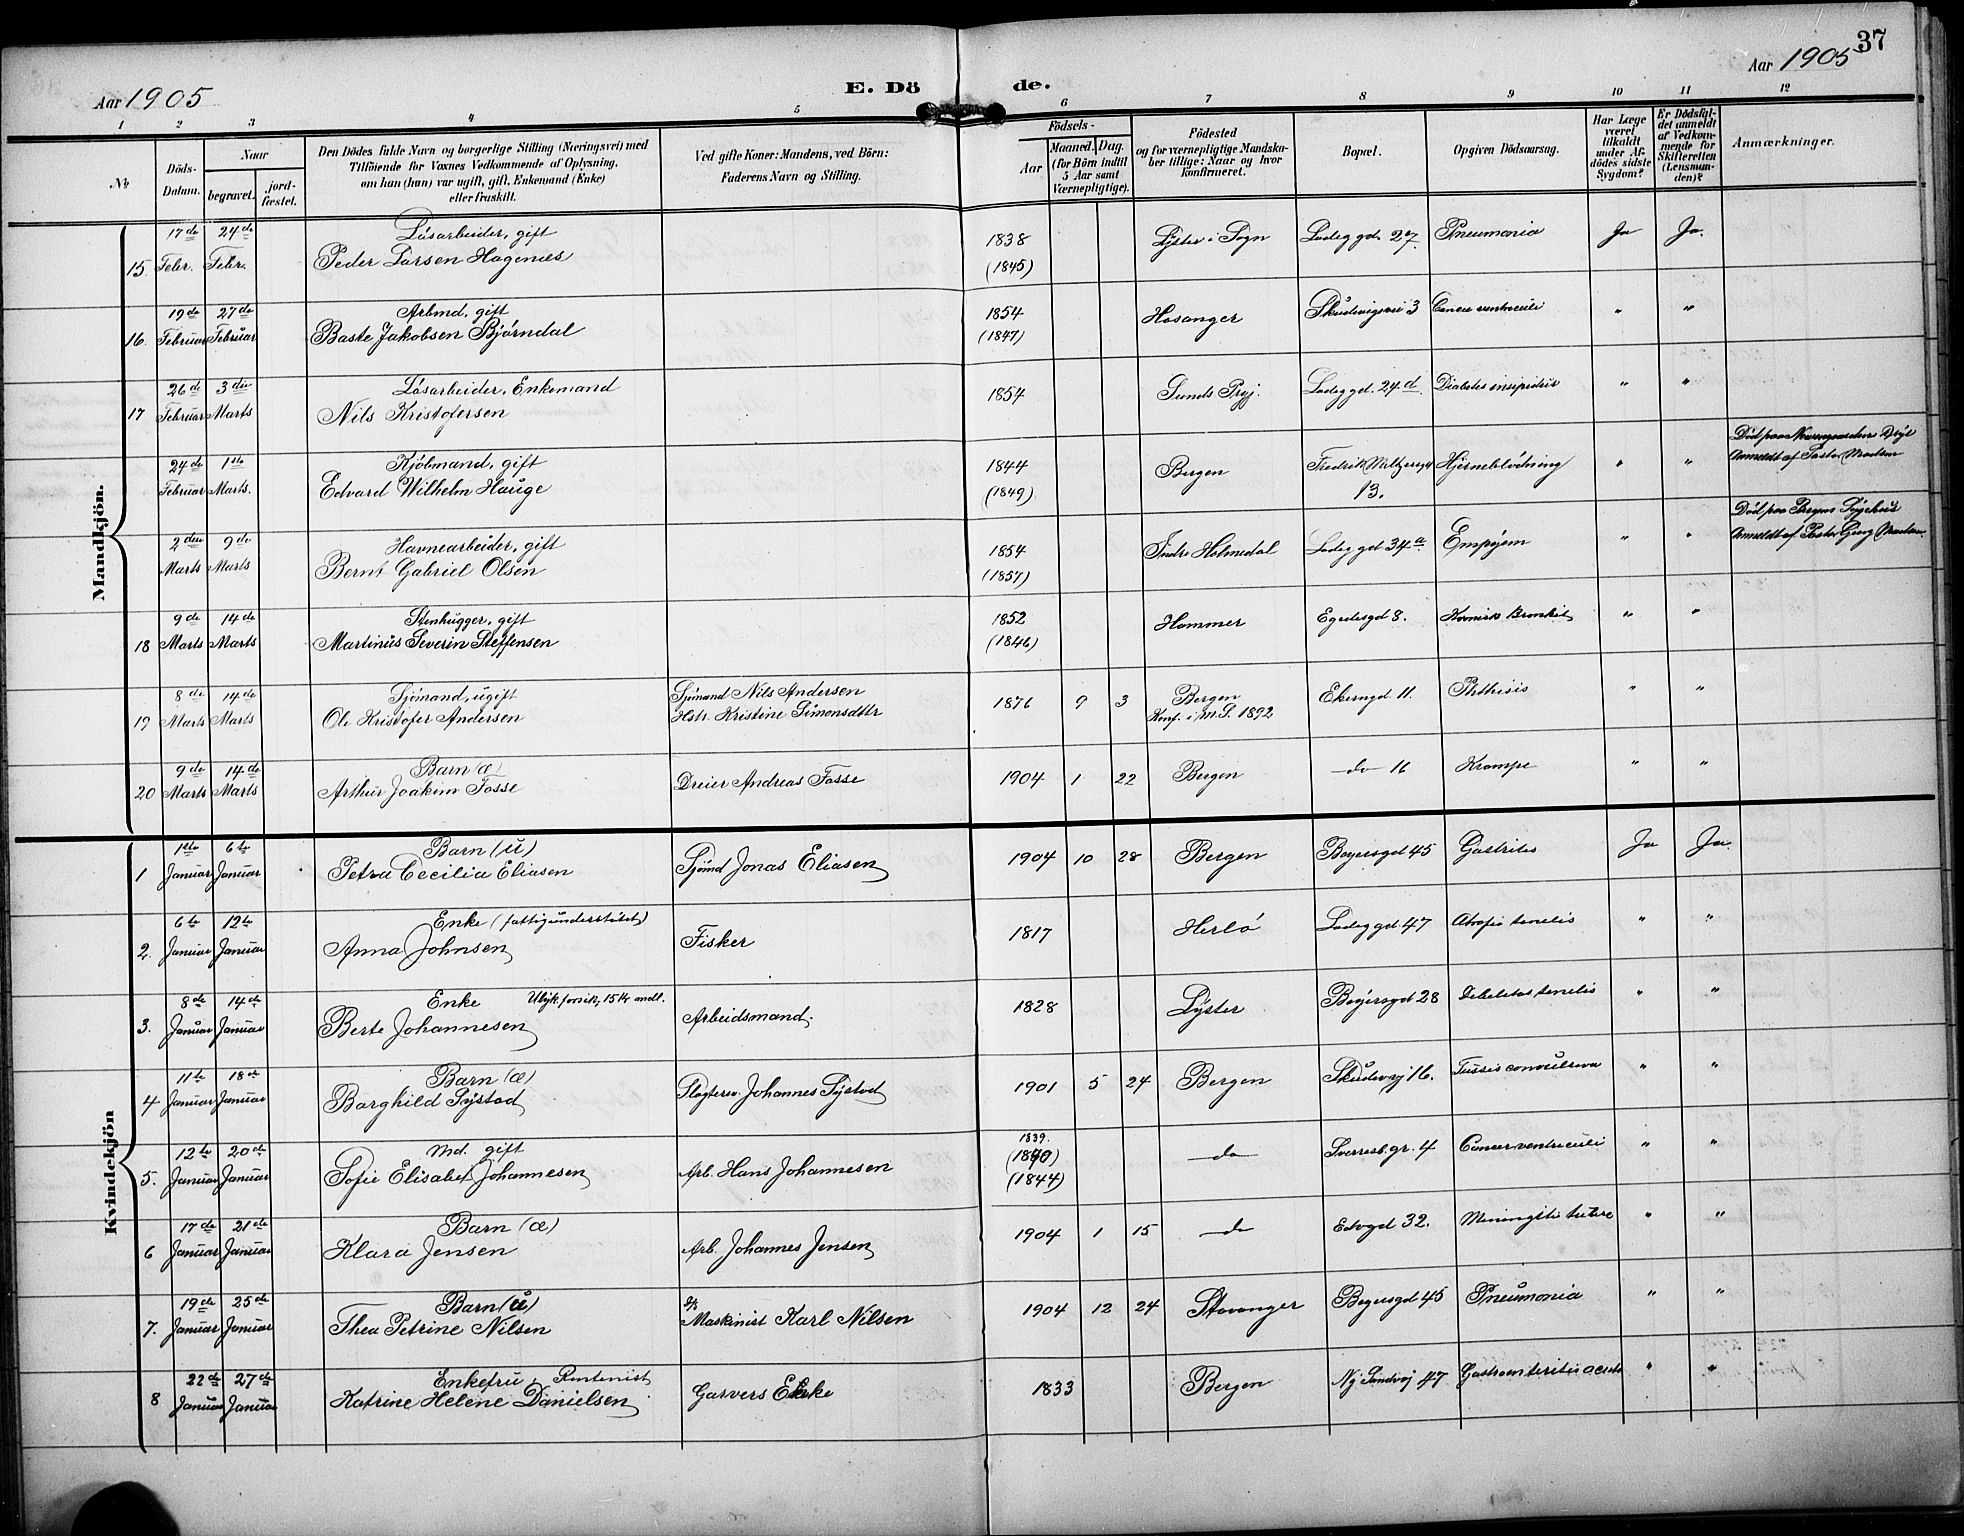 37
Aar 1905
Aar 1905
E. Dö de.
1 2 3 4 5 6 7 8 9 10 11 12
No
Döds-Datum.
Naar
begravet.
jord-fæstet.
Den Dödes fulde Navn og borgerlige Stilling (Næringsvei) med
Tilföiende for Voxnes Vedkommende af Oplysning,
om han (hun) var ugift, gift, Enkemand (Enke)
eller fraskilt.
Ved gifte Koner: Mandens, ved Börn:
Faderens Navn og Stilling.
Födsels-
Aar
Maaned. Dag.
(for Börn indtil
5 Aar samt
Værnepligtige).
Födested
og for værnepligtige Mandska-
ber tillige: Naar og hvor
konfirmeret.
Bopæl.
Opgiven Dödsaarsag.
Har Læge
været
tilkaldt
under Af-
dödes sidste
Sygdom?
Er Dödsfal-
det anmeldt
af Vedkom-
mende for
Skifteretten
(Lensman-
den)?
Anmærkninger.
Mandkjön.
17de 24de Løsarbeider, gift 1838 Lyster i Sogn Ladeggd. 27 Pneumonia Ja Ja.
15 Febr. Febr. Peder Larsen Hagenæs (1845)
19de 27de Arbmd, gift 1854 Hosanger Skudevigsvei 3 Cancer ventriculi " "
16. Februar Februar Baste Jakobsen Bjørndal (1847)
26de 3die Løsarbeider, Enkemand 1854 Sunds Prgj. Ladeggd. 24d Diabetes insipidus " "
17 Februar Marts Nils Kristofersen
24de 1ste Kjølmand, gift 1844 Bergen Fredrik Meltzersgd Hjerneblødning " " Død paa
Februar Marts. Edvard Wilhelm Hauge (1849) 13. Anmeldt af Pastor Madsen
2den 9de Havnearbeider, gift 1854 Indre Holmedal Ladeggd 34a Empyem " " Død paa Bergens Sygehus
Marts Marts Bernt Gabriel Olsen (1857) Anmeldt af Pastor Madsen
9de 14de Stenhugger, gift 1852 Hammer Egedesgd 8. Kronisk Bronkit " "
18 Marts Marts Martinus Severin Steffensen (1846)
8de 14de Sjømand, ugift Sjømand Nils Andersen 1876 9 3 Bergen Ekerngd 11. Phthisis " "
19 Marts Marts Ole Kristofer Andersen Hstr. Kristine Simonsdttr Konf. i M.S. 1892
9de 14de Barn (æ) Dreier Andreas Fosse 1904 1 22 Bergen do 16 Krampe " "
20 Marts Marts Arthur Joakim Fosse
Kvindekjön
1ste 6te Barn (u) Sjømd Jonas Eliasen 1904 10 28 Bergen Bøyersgd 45 Gastritis Ja Ja.
1 Januar Januar Petra Cecilia Eliasen
6te 12te Enke (fattigunderstøttet) Fisker 1817 Herlø Ladeggd 47 Atrofia senilis " "
2. Januar Januar Anna Johnsen
8de 14de Enke Ulyk.forsik, 15 kr mdl. Arbeidsmand. 1828 Lyster Bøyersgd 28 Debilitas senilis " "
3. Januar Januar Berte Johannesen
11te 18de Barn (æ) Slagtersv. Johannes Systad 1901 5 24 Bergen Skudevvj 16. Tussis convulsiva " "
4 Januar Januar Borghild Systad
12te 20de Md. gift Arb. Hans Johannesen 1839. (1840) (1844) do Sverresb.gr. 4 Cancer ventriculi " "
5. Januar Januar Sofie Elisabet Johannesen
17de 21de Barn (æ) Arb. Johannes Jensen 1904 1 15 do Edvgd 32. " "
6 Januar Januar Klara Jensen
19de 25de Barn (u) Maskinist Karl Nilsen 1904 12 24 Stavanger Bøyersgd 45 Pneumonia " "
7. Januar Januar Thea Petrine Nilsen
22de 27de Enkefru Rentenist Garvers Enke 1833 Bergen Ny Sandvj 47 Gastroenteritis acuta " "
8 Januar Januar Katrine Helene Danielsen